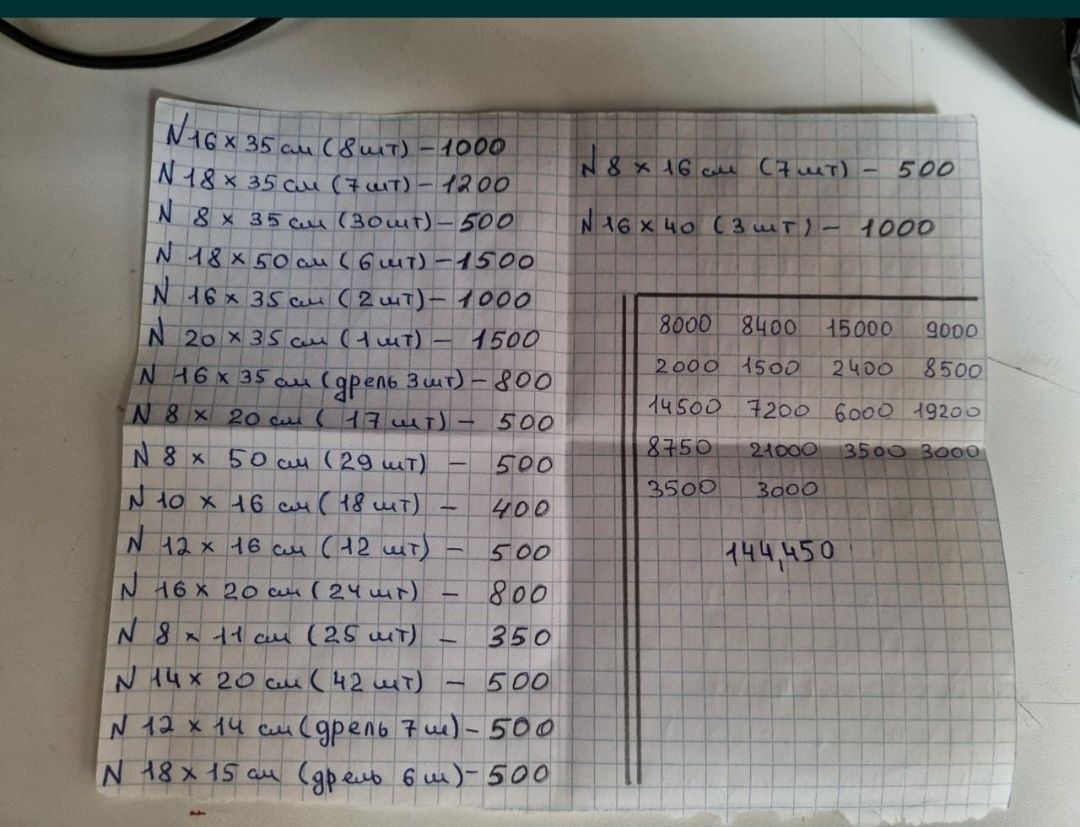 N 16 × 35 см (8 шт) – 1000
N 18 × 35 см (7 шт) – 1200
N 8 × 35 см (30 шт) – 500
N 18 × 50 см (6 шт) – 1500
N 16 × 35 см (2 шт) – 1000
N 20 × 35 см (1 шт) – 1500
N 16 × 35 см (дрель 3 шт) – 800
N 8 × 20 см (17 шт) – 500
N 8 × 50 см (29 шт) – 500
N 10 × 16 см (18 шт) – 400
N 12 × 16 см (12 шт) – 500
N 16 × 20 см (24 шт) – 800
N 8 × 11 см (25 шт) – 350
N 14 × 20 см (42 шт) – 500
N 12 × 14 см (дрель 7 ш) – 500
N 18 × 15 см (дрель 6 ш) – 500
N 8 × 16 см (7 шт) – 500
N 16 × 40 (3 шт) – 1000
8000 8400 15000 9000
2000 1500 2400 8500
14500 7200 6000 19200
8750 21000 3500 3000
3500 3000
144,450